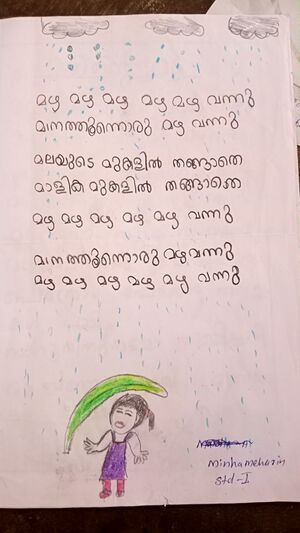 മഴ മഴ മഴ മഴ മഴ വന്നു
മാനത്തൂന്നൊരു മഴ വന്നു
മലയുടെ മുകളിൽ തങ്ങാതെ
മാളിക മുകളിൽ തങ്ങാതെ
മഴ മഴ മഴ മഴ മഴ വന്നു
മാനത്തൂന്നൊരു മഴവന്നു
മഴ മഴ മഴ മഴ മഴ വന്നു
Minhameharin
Std-I